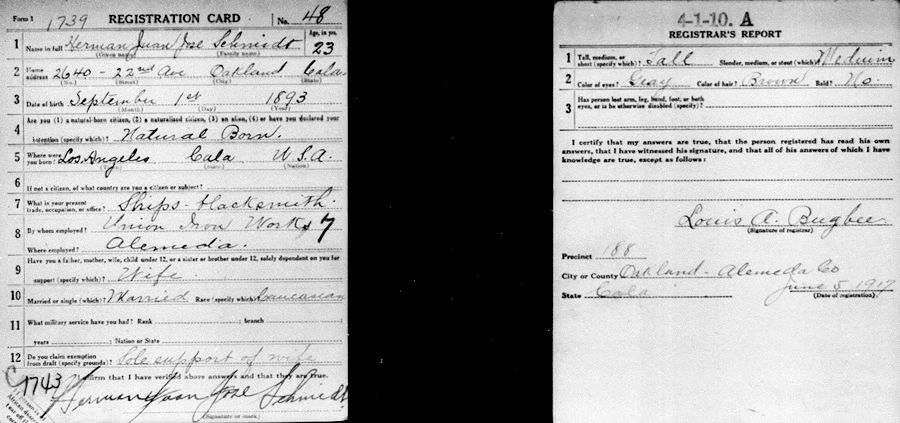 Form 1 1739 REGISTRATION CARD No. 48
1 Name in full Herman Juan Jose Schmidt Age, in yrs. 23
(Given name) (Family name)
2 Home address 2640 - 22nd Ave Oakland Cala.
(No.) (Street) (City) (State)
3 Date of birth September 1st 1893
(Month) (Day) (Year)
4 Are you (1) a natural-born citizen, (2) a naturalized citizen, (3) an alien, (4) or have you declared your
intention (specify which)? Natural Born.
5 Where were you born? Los Angeles Cala U.S.A.
(Town) (State) (Nation)
6 If not a citizen, of what country are you a citizen or subject?
7 What is your present trade, occupation, or office? Ships-blacksmith.
8 By whom employed? Union Iron Works 7
Where employed? Alemeda.
9 Have you a father, mother, wife, child under 12, or a sister or brother under 12, solely dependent on you for
support (specify which)? Wife
10 Married or single (which)? Married Race (specify which)? Caucasian
11 What military service have you had? Rank ; branch
years ; Nation or State
12 Do you claim exemption from draft (specify grounds)? Sole support of wife
1743 affirm that I have verified above answers and that they are true.
Herman Juan Jose Schmidt
(Signature or mark)
4-1-10. A
REGISTRAR'S REPORT
1 Tall, medium, or short (specify which)? Tall Slender, medium, or stout (which)? Meduim
2 Color of eyes? Gray Color of hair? Brown Bald? No.
3 Has person lost arm, leg, hand, foot, or both
eyes, or is he otherwise disabled (specify)?
I certify that my answers are true, that the person registered has read his own
answers, that I have witnessed his signature, and that all of his answers of which I have
knowledge are true, except as follows:
Louis A. Bugbee
(Signature of registrar)
Precinct 188
City or County Oakland - Alemeda Co
State Cala June 5, 1917
(Date of registration)